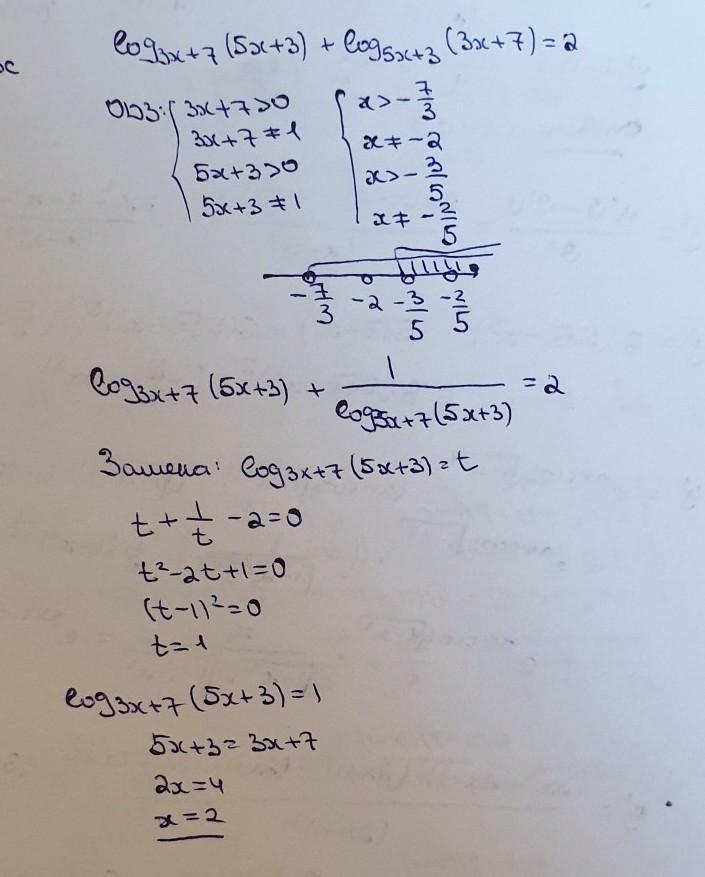 log₃ₓ₊₇ (5x+3) + log₅ₓ₊₃ (3x+7) = 2
x
ОДЗ: { 3x+7>0 { x>-7/3
3x+7≠1 x≠-2
5x+3>0 x>-3/5
5x+3≠1 x≠-2/5
-7/3 -2 -3/5 -2/5
log₃ₓ₊₇ (5x+3) + 1/log₃ₓ₊₇ (5x+3) = 2
Замена: log₃ₓ₊₇ (5x+3) = t
t + 1/t - 2 = 0
t²-2t+1=0
(t-1)²=0
t=1
log₃ₓ₊₇ (5x+3) = 1
5x+3 = 3x+7
2x=4
x=2